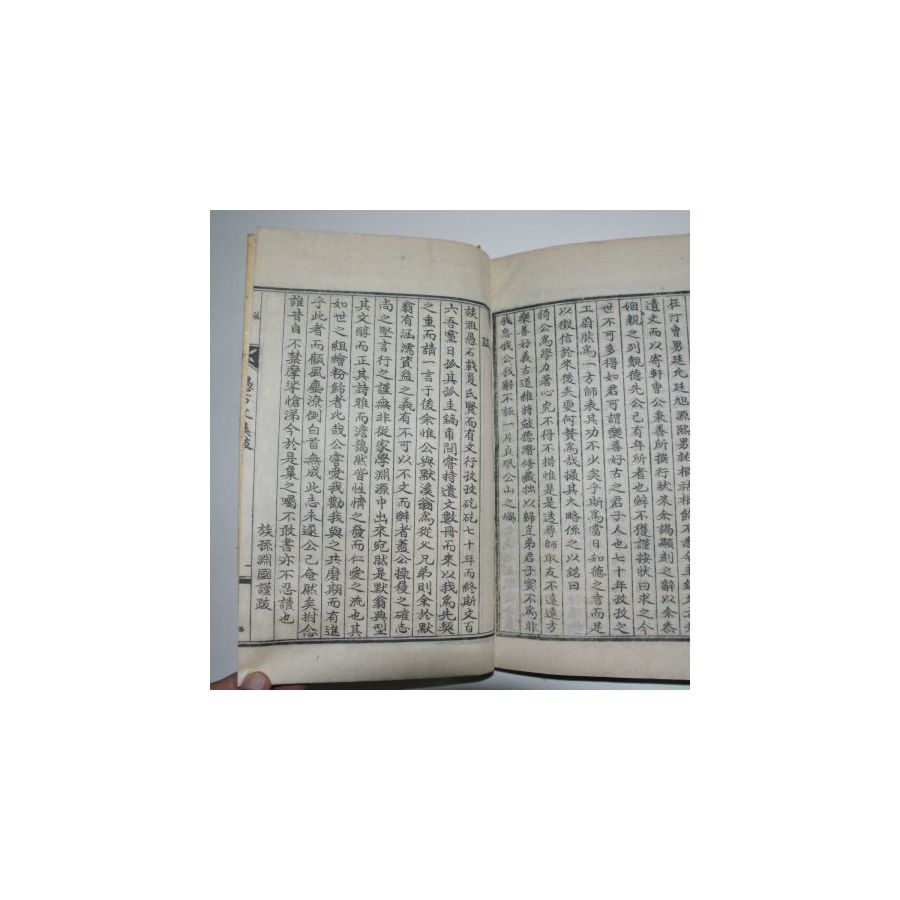 在汀曹男廷允廷旭源熙男祐相祐
遺史而以寄軒曹公秉善所撰行狀來余謁顯刻之辭以余忝
姻親之列覿德先公已有年所者也辭不獲謹按狀曰求之今
世不可多得如君可謂樂善好古之君子人也七十年孜孜之
工蔚然爲一方師表其功不少矣乎斯爲當日知德之言而足
以徵信於來後矣更何贅爲哉撮其大略係之以銘曰
猗公爲學力著心究不得不措惟是遠尋師取友不遠遠方
樂善好義古道維將斂德潛修藏拙以歸豈弟君子實不爲非
我哀我公我辭不誣一片貞珉公山之嵎
跋
族祖愚石戟夏氏賢而有文行孜孜矻矻七十年而終斯文百
六吾黨日孤其孤圭鎬甫間嘗持遺文數冊而來以我爲先契
之重而請一言于後余惟公與默溪翁爲從父兄弟則余於默
翁有涵濡資益之義有不可以不文而辭者蓋公操履之確志
尚之堅言行之謹無非從家學淵源中出來宛然是默翁典型
其文醇而正其詩雅而澹藹然皆性情之發而仁愛之流也其
如世之組繪粉飾者比哉公嘗愛我勸我與之共磨期而有進
乎此者而顧風塵潦倒白首無成此志未還公已奄然矣拊念
誰昔自不禁摩挲愴涕今於是集之囑不敢書亦不忍讀也
族孫淵國謹跋
跋
愚石文集跋
一